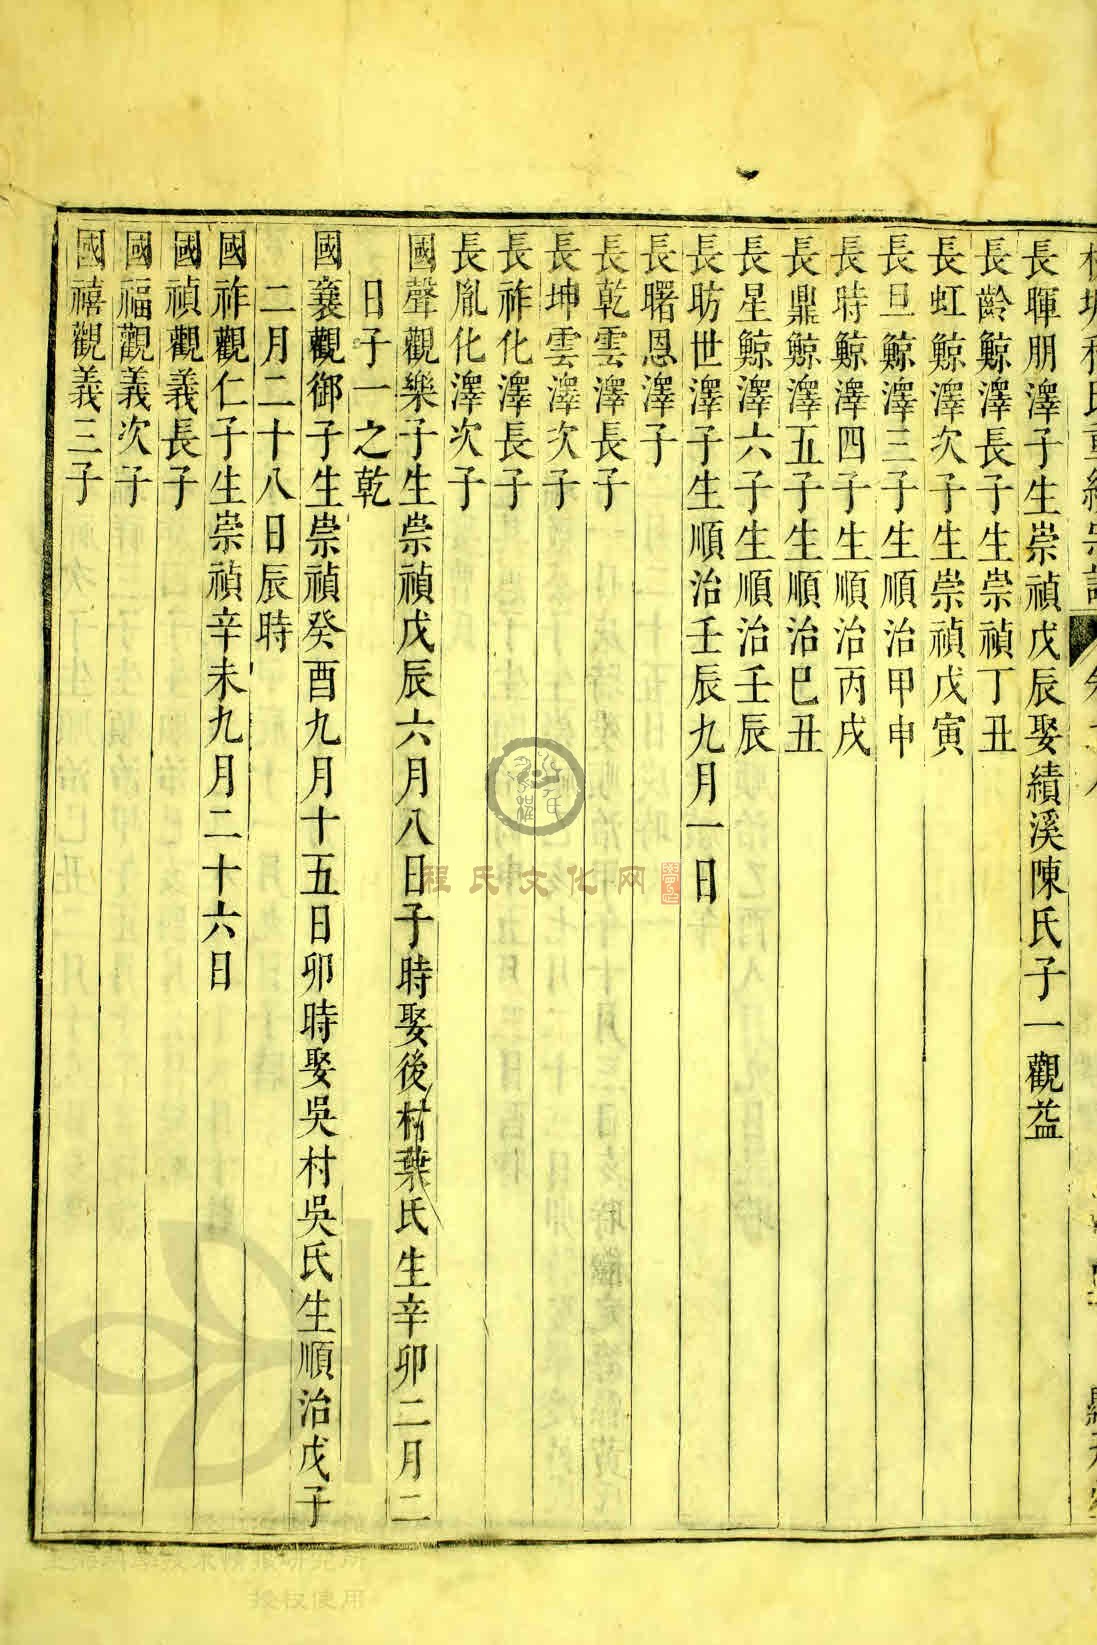 長暉朋澤子生崇禎戊辰娶績溪陳氏子一觀益
長齡鯨澤長子生崇禎丁丑
長虹鯨澤次子生崇禎戊寅
長旦鯨澤三子生順治甲申
長時鯨澤四子生順治丙戌
長鼎鯨澤五子生順治巳丑
長星鯨澤六子生順治壬辰
長昉世澤子生順治壬辰九月一日
長曙恩澤子
長乾雲澤長子
長坤雲澤次子
長祚化澤長子
長胤化澤次子
國聲觀樂子生崇禎戊辰六月八日子時娶後村葉氏生辛卯二月二
日子一之乾
國襄觀御子生崇禎癸酉九月十五日卯時娶吳村吳氏生順治戊子
二月二十八日辰時
國祚觀仁子生崇禎辛未九月二十六日
國禎觀義長子
國福觀義次子
國禧觀義三子
程氏文化网
授权使用